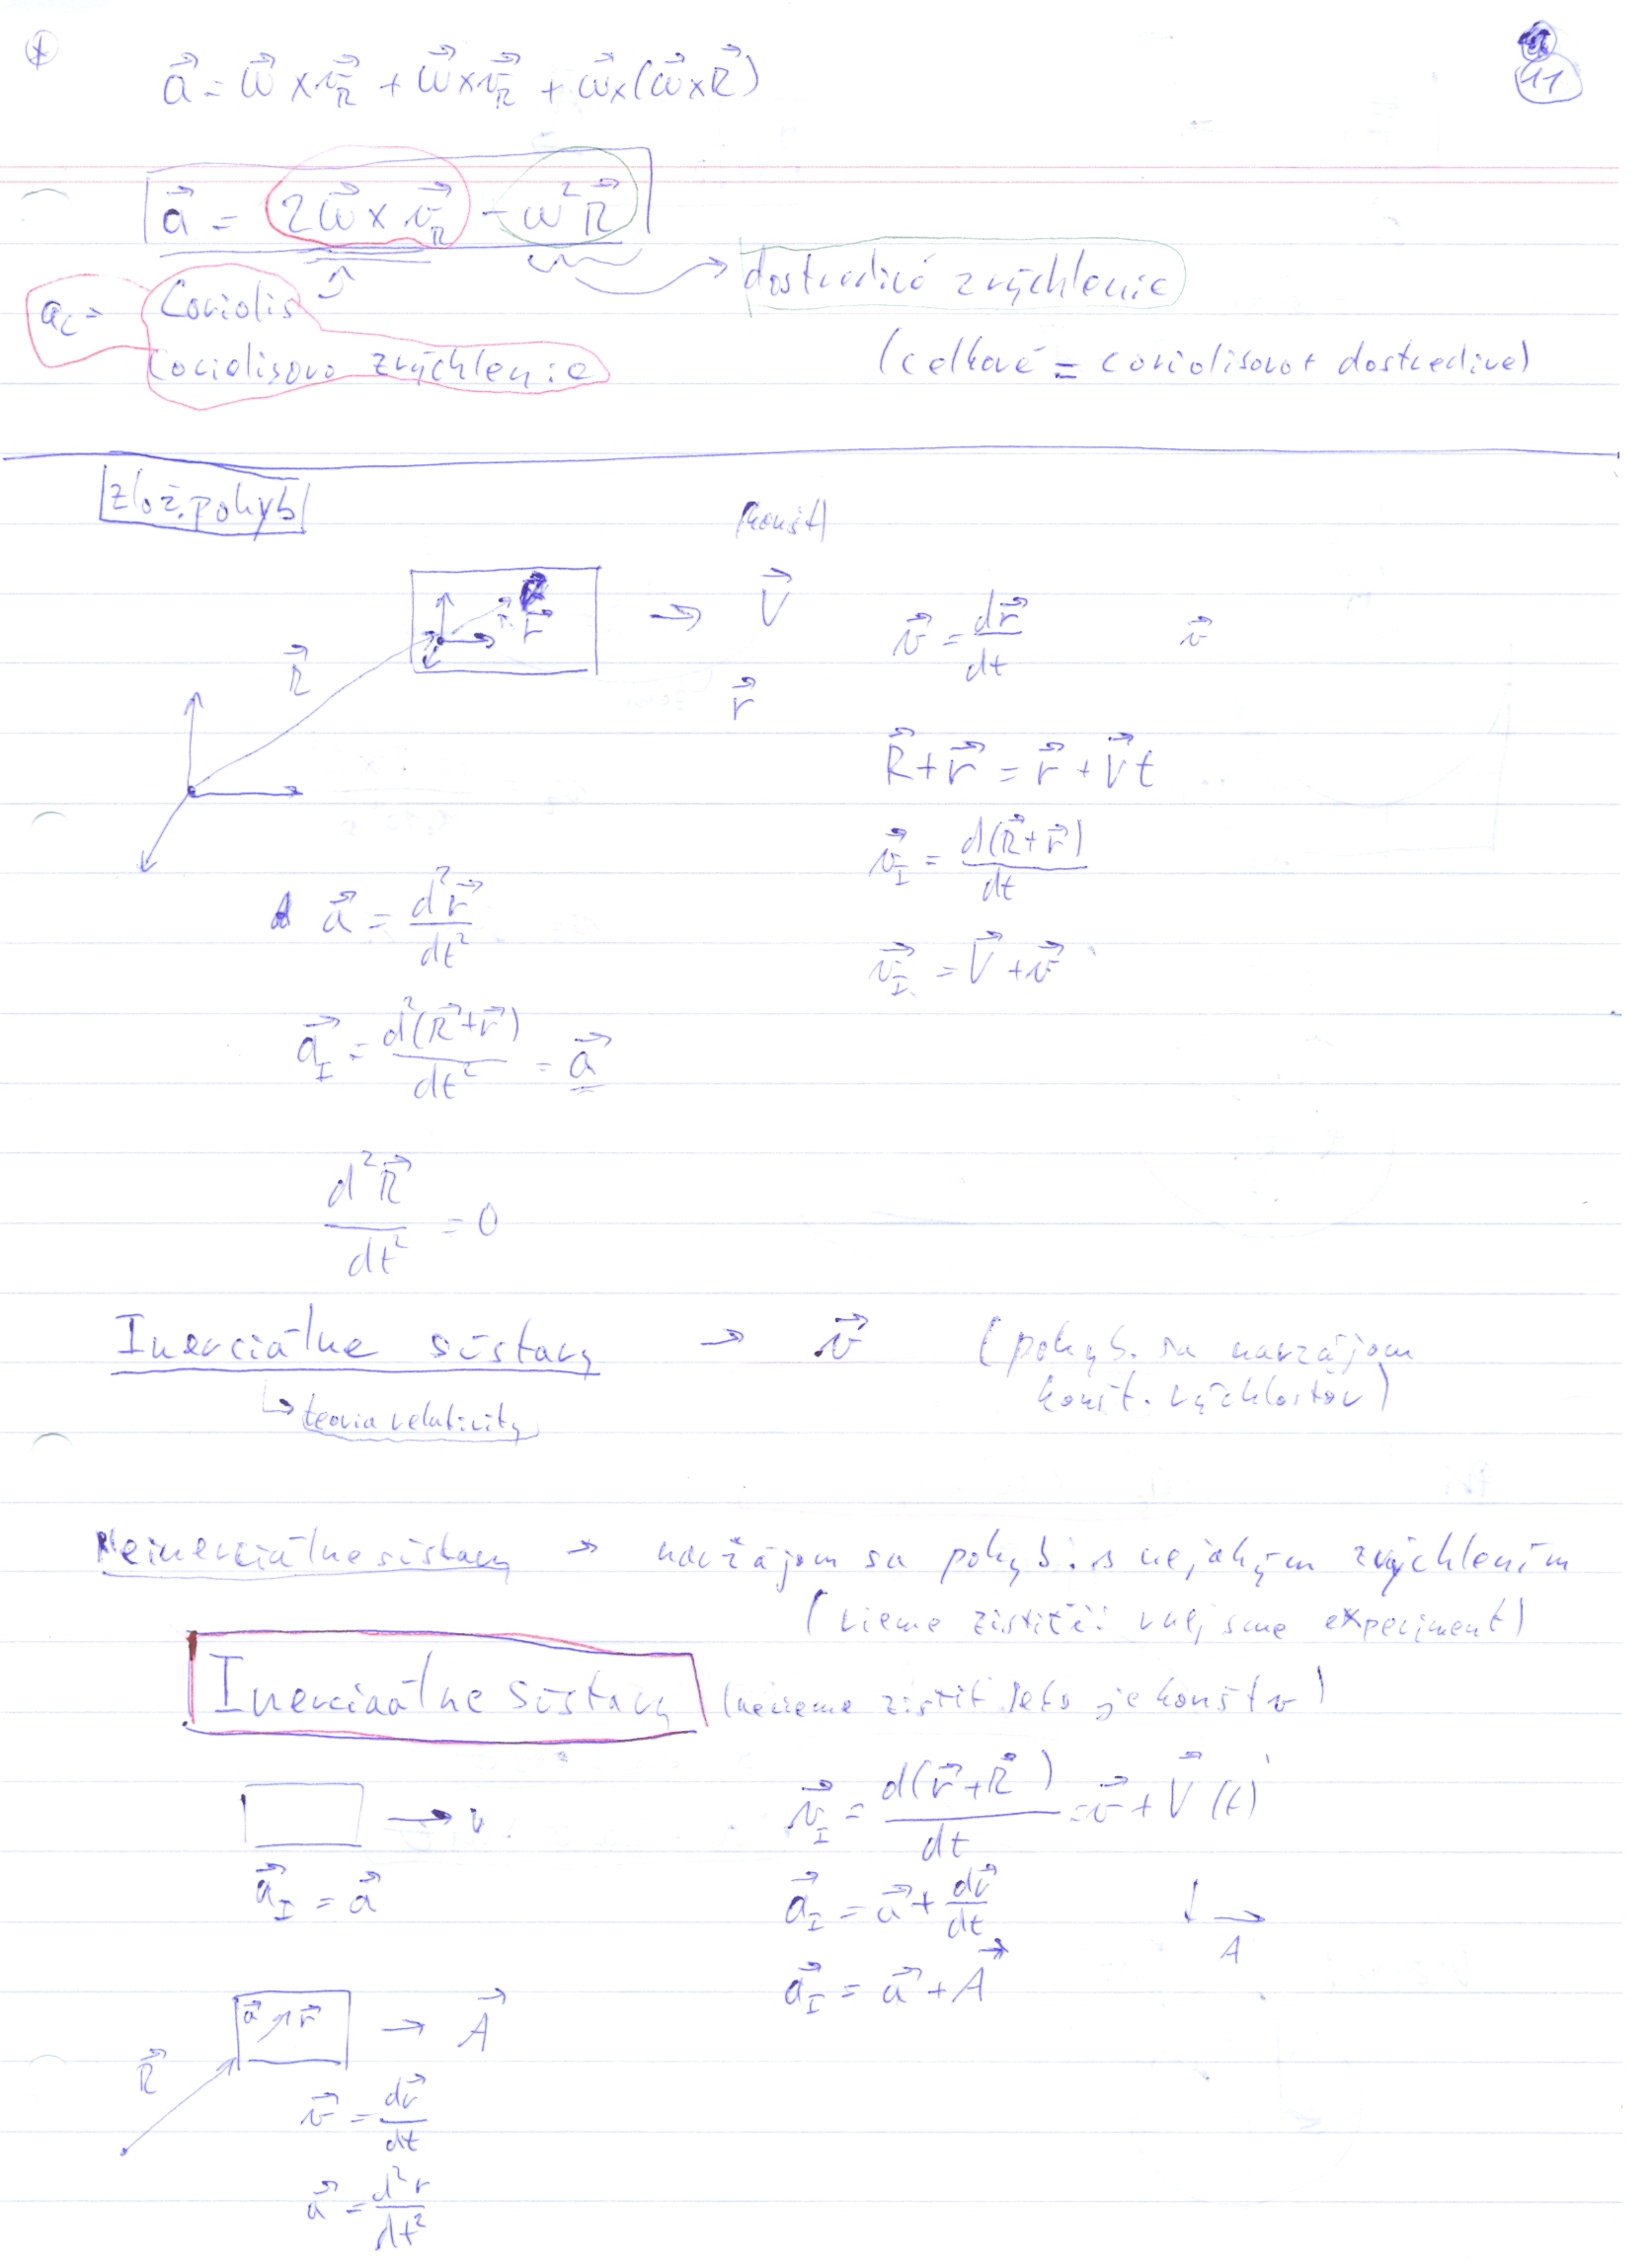 *
11
a⃗ = ω⃗ × v⃗_R + ω⃗ × v⃗_R + ω⃗ × (ω⃗ × R⃗)
a⃗ = 2ω⃗ × v⃗_R − ω² R⃗
dostredivé zrýchlenie
a_c = Coriolis
Coriolisovo zrýchlenie
(celkové = coriolisovo + dostredivé)
Zlož. pohyb
(konšt)
r⃗
V⃗
R⃗
r⃗
v⃗ = dr⃗/dt
v⃗
R⃗ + r⃗ = r⃗ + V⃗t
v⃗_I = d(R⃗ + r⃗)/dt
a⃗ = d²r⃗/dt²
v⃗_I = V⃗ + v⃗
a⃗_I = d²(R⃗ + r⃗)/dt² = a⃗
d²R⃗/dt² = 0
Inerciálne sústavy → v⃗ (pohyb. sa navzájom
konšt. rýchlosťou)
↳ teoria relativity
Neinerciálne sústavy → navzájom sa pohyb. s nejakým zrýchlením
(vieme zistiť experiment)
Inerciaálne sústavy (nevieme zistiť lebo je konšt v)
→ v
v⃗_I = d(r⃗ + R⃗)/dt = v⃗ + V⃗(t)
a⃗_I = a⃗
a⃗_I = a⃗ + dv⃗/dt
A
a⃗_I = a⃗ + A⃗
a⃗ r⃗ → A⃗
R⃗
v⃗ = dr⃗/dt
a⃗ = d²r/dt²